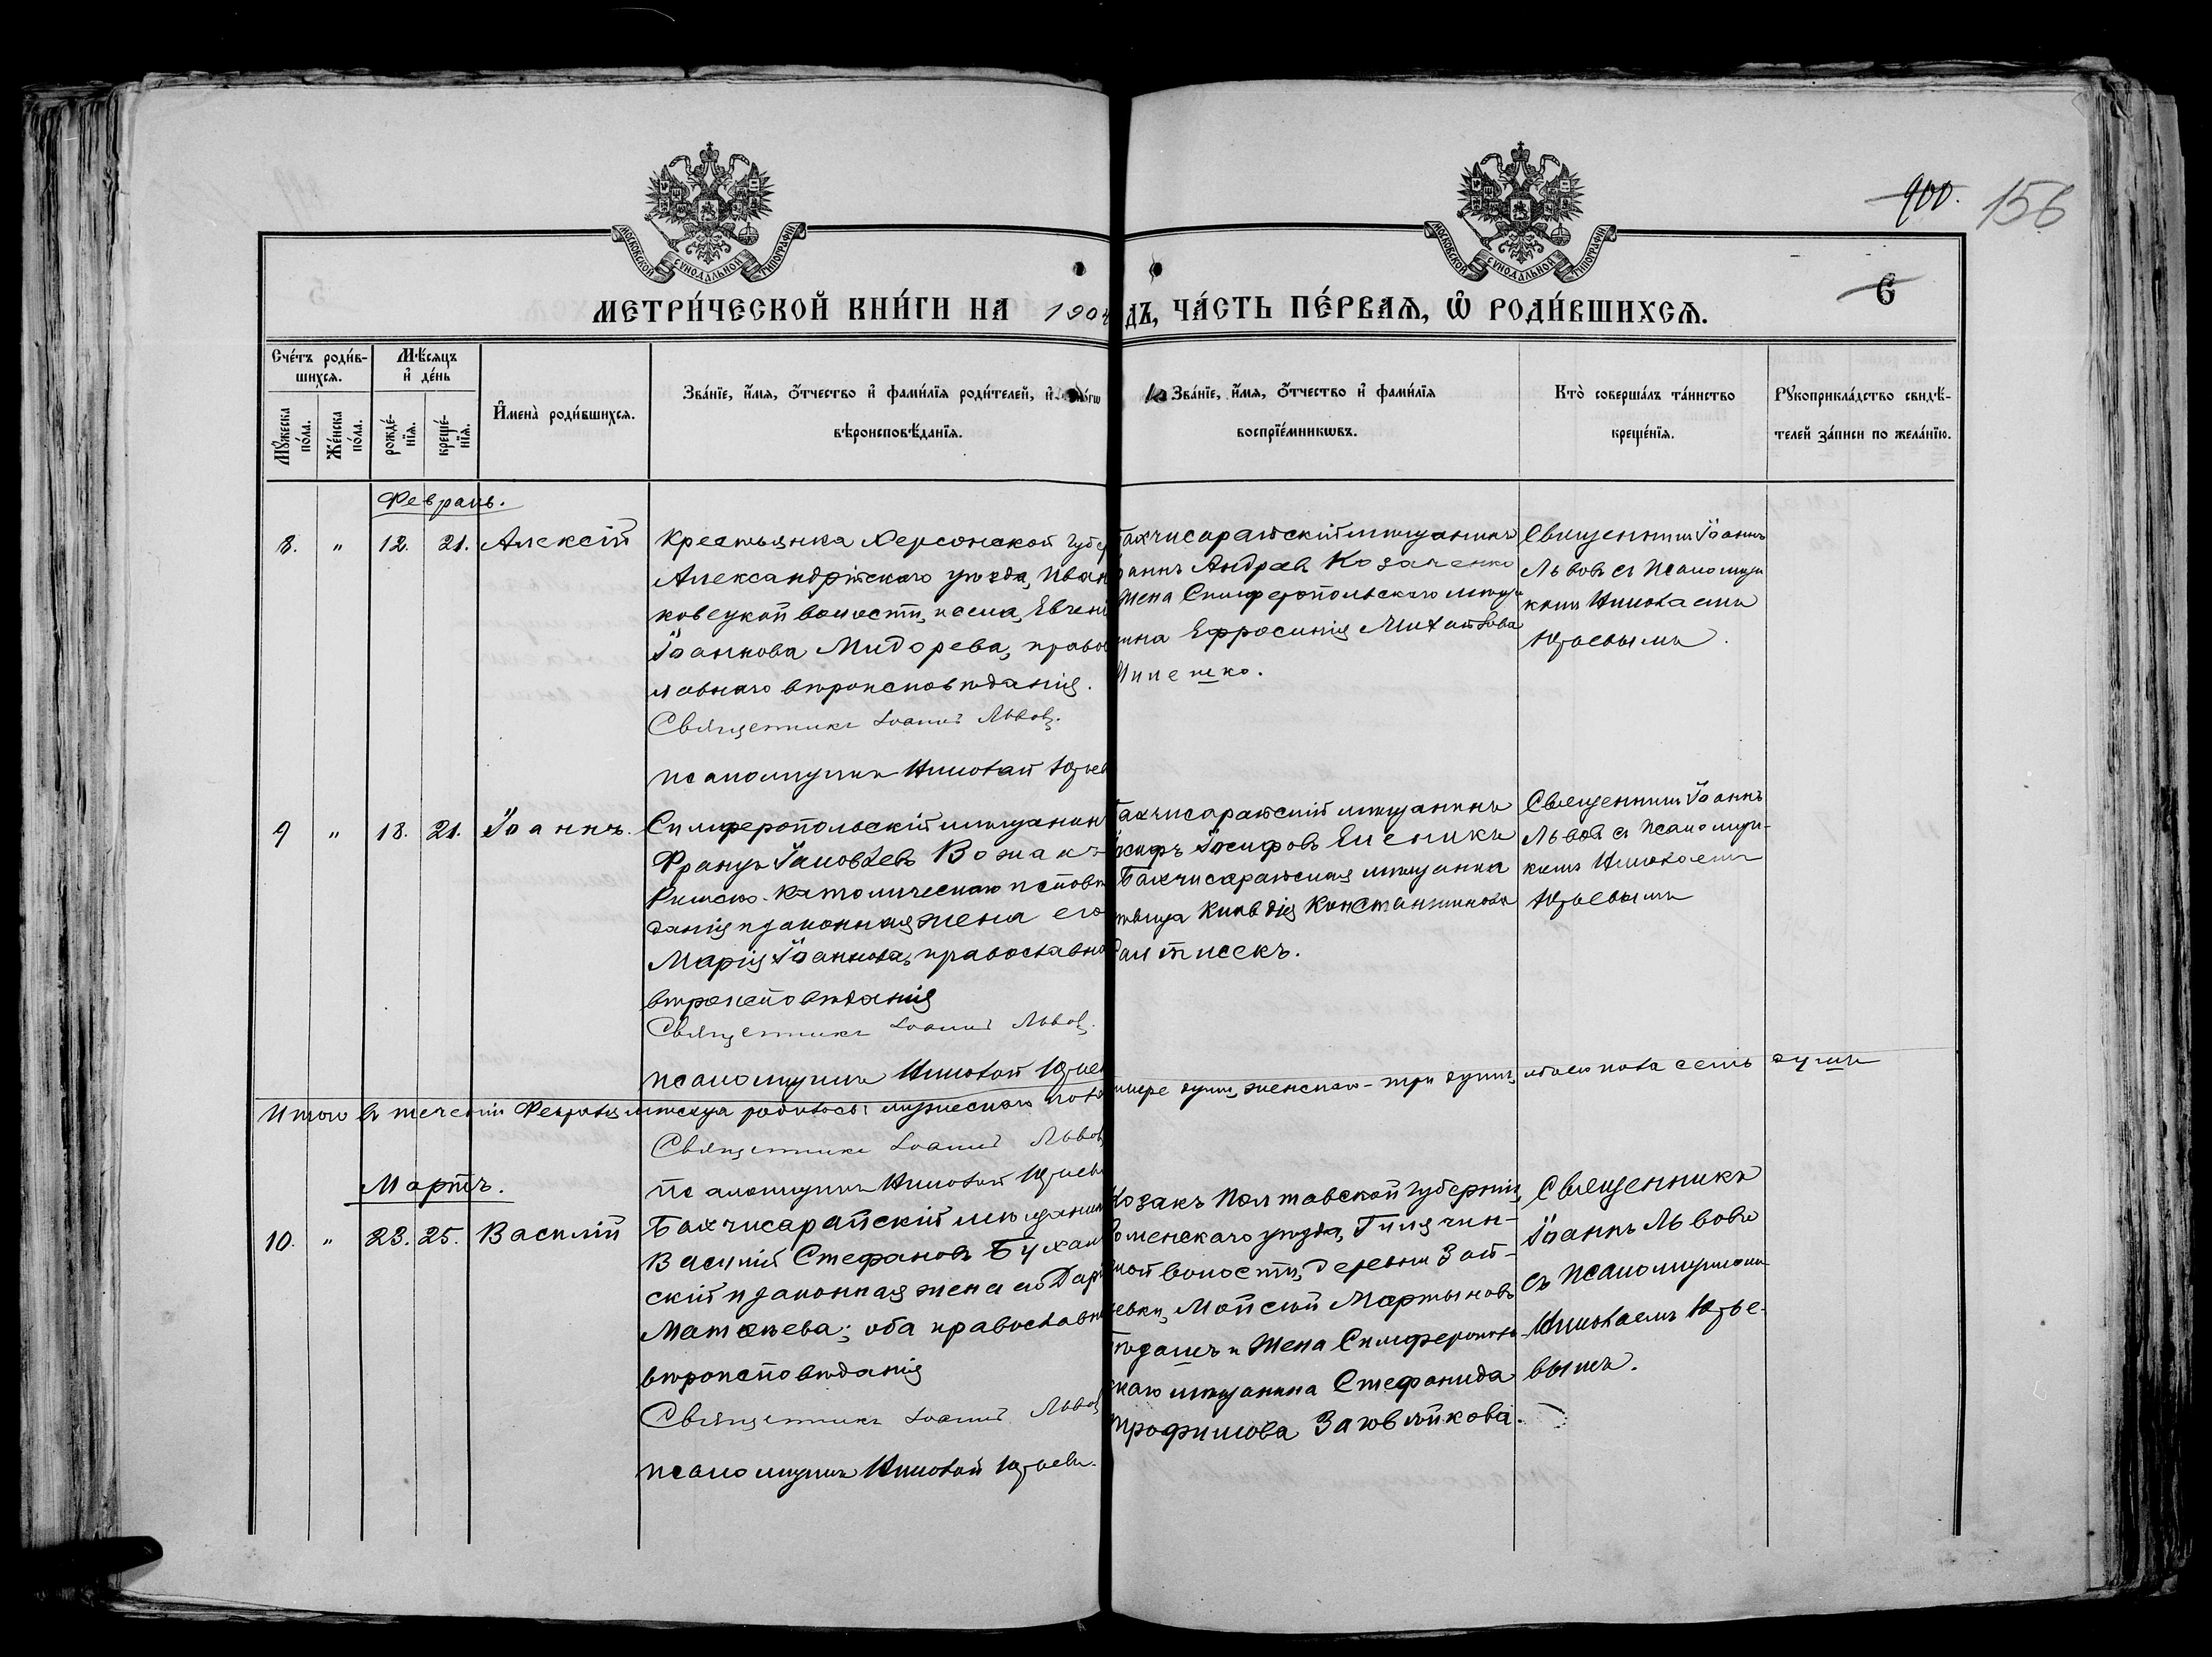 900. 156
МОСКОВСКОЙ СѴНОДАЛЬНОЙ ТИПОГРАФІИ
МОСКОВСКОЙ СѴНОДАЛЬНОЙ ТИПОГРАФІИ
6
МЕТРИ́ЧЕСКОЙ КНИ́ГИ НА 1904 ДЪ, ЧА́СТЬ ПЕ́РВАѦ, Ѡ҆ РОДИ́ВШИХСѦ.
Сче́тъ роди́в-
шихсѧ.
Мꙋ́жеска по́ла.
Же́нска по́ла.
Мѣ́сѧцъ и҆ де́нь
рожде́-нїѧ.
креще́-нїѧ.
И҆мена̀ роди́вшихсѧ.
Зва́нїе, и҆́мѧ, ѻ҆́тчество и҆ фами́лїѧ роди́телей, и҆
вѣроисповѣ́данїѧ.
Зва́нїе, и҆́мѧ, ѻ҆́тчество и҆ фами́лїѧ
воспрїе́мникѡвъ.
Кто̀ соверша́лъ та́инство
креще́нїѧ.
Рꙋкоприкла́дство свидѣ́-
телей за́писи по жела́нїю.
Февраль.
8. " 12. 21. Алексій
Крестьянка Херсонской Губер
Александрійскаго уѣзда, Иван
ковецкой волости, села, Евгені
Іоаннова Мидорева, правос
лавнаго вѣроисповѣданія.
Священникъ Іоаннъ Львовъ.
псаломщикъ Николай Юрьев
Бахчисарайскій мѣщанинъ
Іоаннъ Андреевъ Козаченко
жена Симферопольскаго мѣща
нина Ефросинія Михайлова
Священникъ Іоаннъ
Львовъ съ Псаломщи
комъ Николаемъ
Юрьевымъ.
9 " 18. 21. Іоаннъ.
Симферопольскій мѣщанин
Францъ Іаковлевъ Вожакъ
Римско-Католическаго исповѣ
данія и законная жена его
Марія Іоаннова, православна
вѣроисповѣданія
Священникъ Іоаннъ Львовъ.
псаломщикъ Николай Юрьев
Бахчисарайскій мѣщанинъ
Іосифъ Іосифовъ Еленикъ
Бахчисарайская мѣщанка
дѣвица Клавдія Константинова
Священникъ Іоаннъ
Львовъ съ Псаломщи-
комъ Николаемъ
Юрьевымъ
Итого въ теченіи Февраля мѣсяца родилось: мужескаго пола четыре души, женскаго - три души, обоего пола семь душъ
Священникъ Іоаннъ Львовъ
Псаломщикъ Николай Юрьевъ
Мартъ.
10. " 23. 25. Василій
Бахчисарайскій мѣщанин
Василій Стефановъ Бухан
скій и законная жена его Дарі
Матѳѣева; оба православна
вѣроисповѣданія
Священникъ Іоаннъ Львовъ
псаломщикъ Николай Юрьевъ.
Козакъ Полтавской Губерніи,
Роменскаго уѣзда, Гилячин-
ской волости, деревни Зай-
цевки, Мойсей Мартыновъ
и Жена Симферополь-
скаго мѣщанина Стефанида
Трофимова
Священникъ
Іоаннъ Львовъ
съ Псаломщикомъ
Николаемъ Юрье-
вымъ.